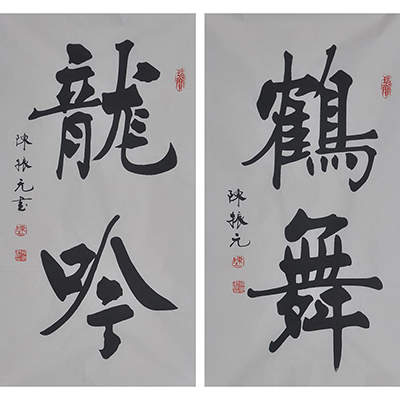 龍吟
陳振元書
鶴舞
陳振元